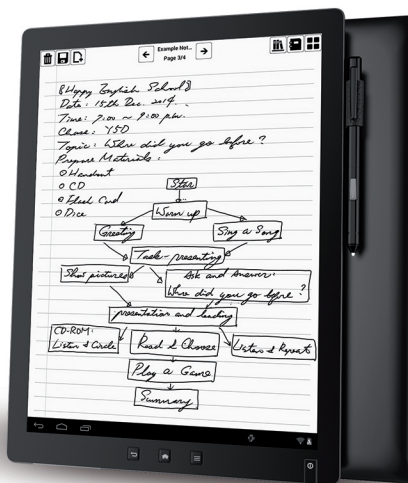 Example Not...
Page 3/4
{Happy English School}
Date: 15th Dec. 2014.
Time: 7:00 ~ 9:00 p.m.
Chase: Y5D
Topic: Where did you go before?
Prepare Materials:
Handout
CD
Flash Card
Dice
Star
Warm up
Greeting
Sing a Song
Task-presenting
Show pictures
Ask and Answer:
Where did you go before?
presentation and leading
CD-ROM:
Listen & Circle
Read & Choose
Listen & Repeat
Play a Game
Summary